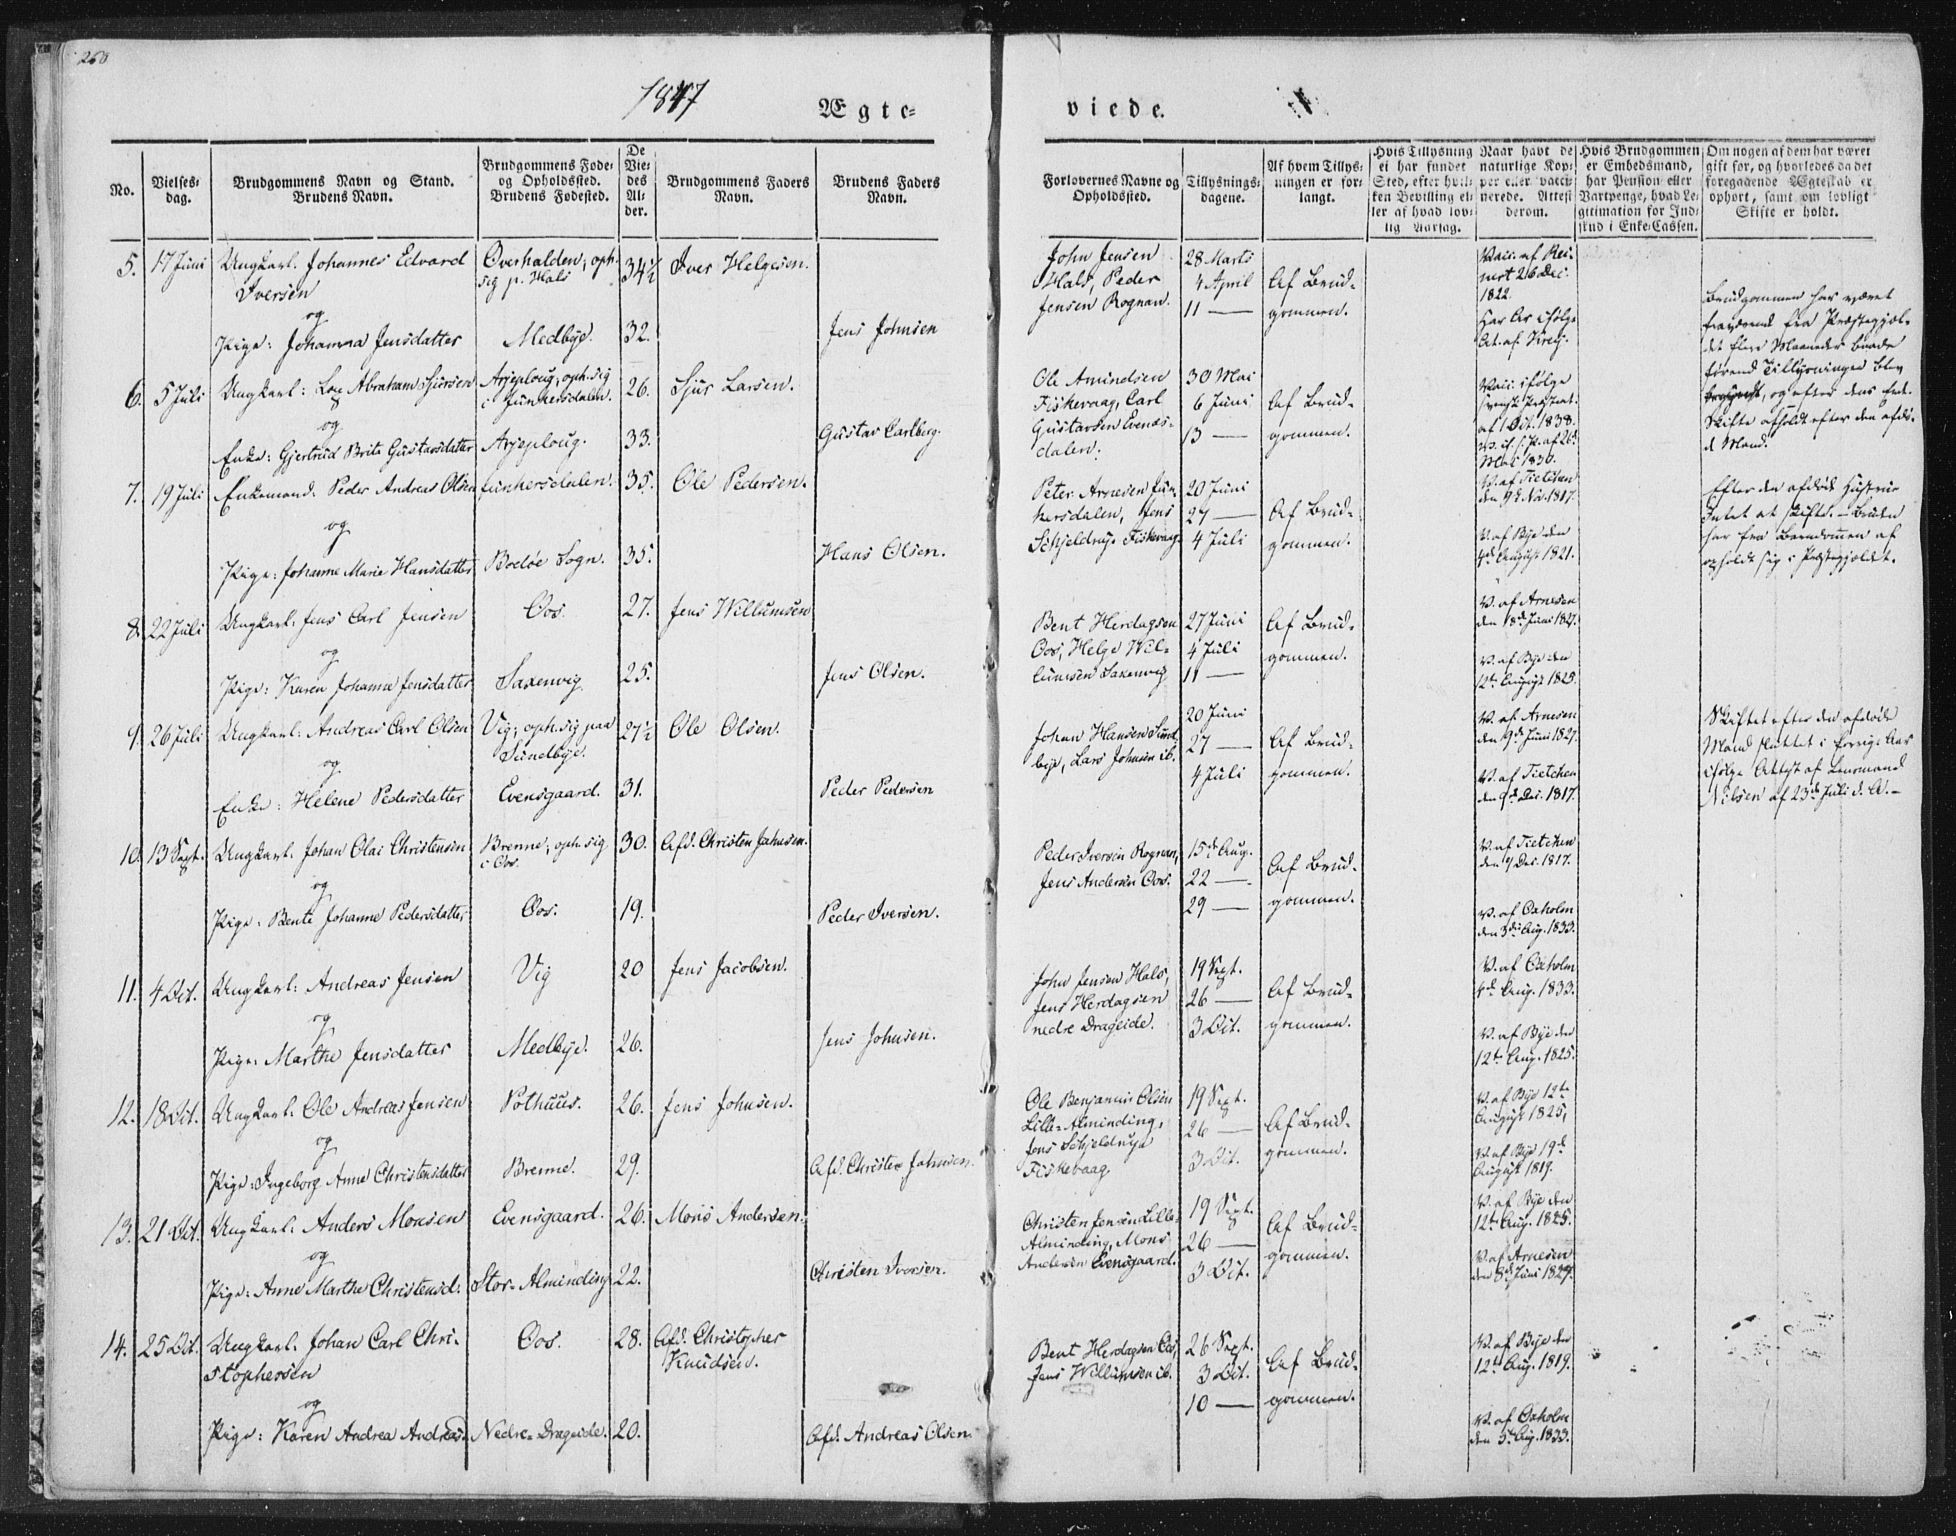 260
1847
Ægte-
viede.
No.
Vielses-
dag.
Brudgommens Navn og Stand.
Brudens Navn.
Brudgommens Føde-
og Opholdssted.
Brudens Fødested.
De
Vie-
des
Al-
der.
Brudgommens Faders
Navn.
Brudens Faders
Navn.
Forlovernes Navne og
Opholdssted.
Tillysnings-
dagene.
Af hvem Tillys-
ningen er for-
langt.
Hvis Tillysning
ei har fundet
Sted, efter hvil-
ken Bevilling el-
ler af hvad lov-
lig Aarsag.
Naar havt de
naturlige Kop-
per eller vacci-
nerede. Attesi
derom.
Hvis Brudgommen
er Embedsmand,
har Pension eller
Vartpenge, hvad Le-
gitimation for Ind-
skud i Enke-Cassen.
Om nogen af dem har været
gift før, og hvorledes da det
foregaaende Ægteskab er
ophørt, samt om lovligt
Skifte er holdt.
5. 17 Juni Ungkarl: Johannes Edvard
Iversen
og
Pige: Johanna Jensdatter
Overhalden, oph.
sig p. Hals
Medbye.
34½
32.
Iver Helgesen.
Jens Johnsen
John Jensen
Hals, Peder
Jensen Rognan.
28 Marts
4 April
11 —
Af Brud-
gommen.
Vacc. af Rei-
nert 26 Dec.
1822.
Brudgommen har været
fraværende fra Præstegjæl-
det flere Maaneder
6. 5 Juli Ungkarl: Lars Abraham Sjursen
og
Enke: Gjertrud Brita Gustavsdatter
Arjeploug, oph. sig
i Junkersdalen.
Arjeploug.
26.
33.
Sjur Larsen.
Gustav Carlberg.
Ole Amundsen
Fiskevaag, Carl
Gustavsen Evenes-
dalen.
30 Mai
6 Juni
13 —
Af Brud-
gommen.
Vacc. ifølge
af 1 Oct. 1838.
Mai 1830.
Skifte afholdt efter den afdø-
de Mand.
7. 19 Juli Enkemand. Peder Andreas Olsen
og
Pige: Johanne Marie Hansdatter
Junkersdalen.
Bodøe Sogn.
35.
35.
Ole Pedersen.
Hans Olsen.
Peter Arnesen Jun-
kersdalen, Jens
Schjeldrup Fiskevaag.
20 Juni
27 —
4 Juli
Af Brud-
gommen.
V. af Tietchen
den 9d Nov. 1817.
V. af Bye den
4de August 1821.
Efter den afdøde Hustrue
Intet at skifte. – Bruden
har fra Barndommen af
opholdt sig i Præstegjældet.
8. 22 Juli Ungkarl: Jens Carl Jensen
og
Pige: Karen Johanna Jensdatter
Oos.
Saxenvig
27.
25.
Jens Willumsen
Jens Olsen.
Bent Herdagsen
Oos, Helge Wil-
lumsen Saxenvig
27 Juni
4 Juli
11 —
Af Brud-
gommen.
V. af Arnesen
den 18d Juni 1827.
V. af Bye den
12te August 1825.
9. 26 Juli Ungkarl: Andreas Carl Olsen
og
Enke: Helene Pedersdatter
Vig; oph. sig paa
Sundbye.
Evensgaard.
27½
31.
Ole Olsen.
Peder Pedersen
Johan Hansen Sund-
bye, Lars Johnsen ib.
20 Juni
27 —
4 Juli
Af Brud-
gommen.
V. af Arnesen
den 9d Juni 1827.
V. af Tietchen
den 9d Dec. 1817.
Skiftet efter den afdøde
Mand sluttet i forrige Aar
ifølge Attest af Lensmand
Nilsen af 23de Juli d. A. –
10. 13 Sept. Ungkarl: Johan Olai Christensen
og
Pige: Bente Johanna Pedersdatter
Brenne, oph. sig
i Oos.
Oos.
30.
19.
Afd. Christen Johnsen.
Peder Iversen.
Peder Iversen Rognan,
Jens Andersen Oos.
15de Aug.
22 —
29 —
Af Brud-
gommen.
V. af Tietchen
den 9 Dec. 1817.
V. af Oxholm
den 3de Aug. 1833.
11. 4 Oct. Ungkarl: Andreas Jensen
og
Pige: Marthe Jensdatter
Vig
Medbye.
20
26.
Jens Jacobsen.
Jens Johnsen.
John Jensen Hals,
Jens Herdagsen
nedre Drageide.
19 Sept.
26 —
3 Oct.
Af Brud-
gommen.
V. af Oxholm
4de Aug. 1833.
V. af Bye den
12te Aug. 1825.
12. 18 Oct. Ungkarl: Ole Andreas Jensen
og
Pige: Ingeborg Anne Christensdatter
Pothuus.
Brenne.
26.
29.
Jens Johnsen.
Afd. Christen Johnsen.
Ole Benjamin Olsen
Lille-Alminding,
Jens Schjeldrup
Fiskevaag.
19 Sept.
26 —
3 Oct.
Af Brud-
gommen.
V. af Bye 12te
August 1825,
V. af Bye 19de
August 1819.
13. 21 Oct. Ungkarl: Anders Monsen
og
Pige: Anne Marthe Christensd.
Evensgaard.
Stor-Alminding
26.
22.
Mons Andersen.
Christen Iversen.
Christen Jensen Lille-
Alminding, Mons
Andersen Evensgaard.
19 Sept.
26 —
3 Oct.
Af Brud-
gommen.
V. af Bye den
12te Aug. 1825.
V. af Arnesen
den 8de Juni 1827.
14. 25 Oct. Ungkarl: Johan Carl Chri-
stophersen
og
Pige: Karen Andrea Andreasd.
Oos.
Nedre-Drageide.
28.
20.
Afd. Christopher
Knudsen.
Afd. Andreas Olsen.
Bent Herdagsen Oos,
Jens Willumsen ib.
26 Sept.
3 Oct.
10 —
Af Brud-
gommen.
V. af Bye den
12te Aug. 1819.
V. af Oxholm
den 5te Aug. 1833.